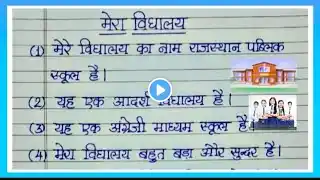 मेरा विद्यालय
(1) मेरे विद्यालय का नाम राजस्थान पब्लिक
स्कूल है।
(2) यह एक आदर्श विद्यालय है।
(3) यह एक अंग्रेजी माध्यम स्कूल है।
(4) मेरा विद्यालय बहुत बड़ा और सुन्दर है।